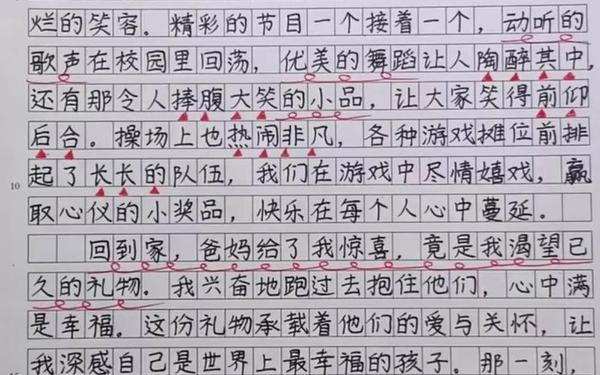 烂的笑容。精彩的节目一个接着一个，动听的
歌声在校园里回荡，优美的舞蹈让人陶醉其中，
还有那令人捧腹大笑的小品，让大家笑得前仰
后合。操场上也热闹非凡，各种游戏摊位前排
起了长长的队伍，我们在游戏中尽情嬉戏，赢
10
取心仪的小奖品，快乐在每个人心中蔓延。
回到家，爸妈给了我惊喜，竟是我渴望已
久的礼物。我兴奋地跑过去抱住他们，心中满
是幸福。这份礼物承载着他们的爱与关怀，让
我深感自己是世界上最幸福的孩子。那一刻，